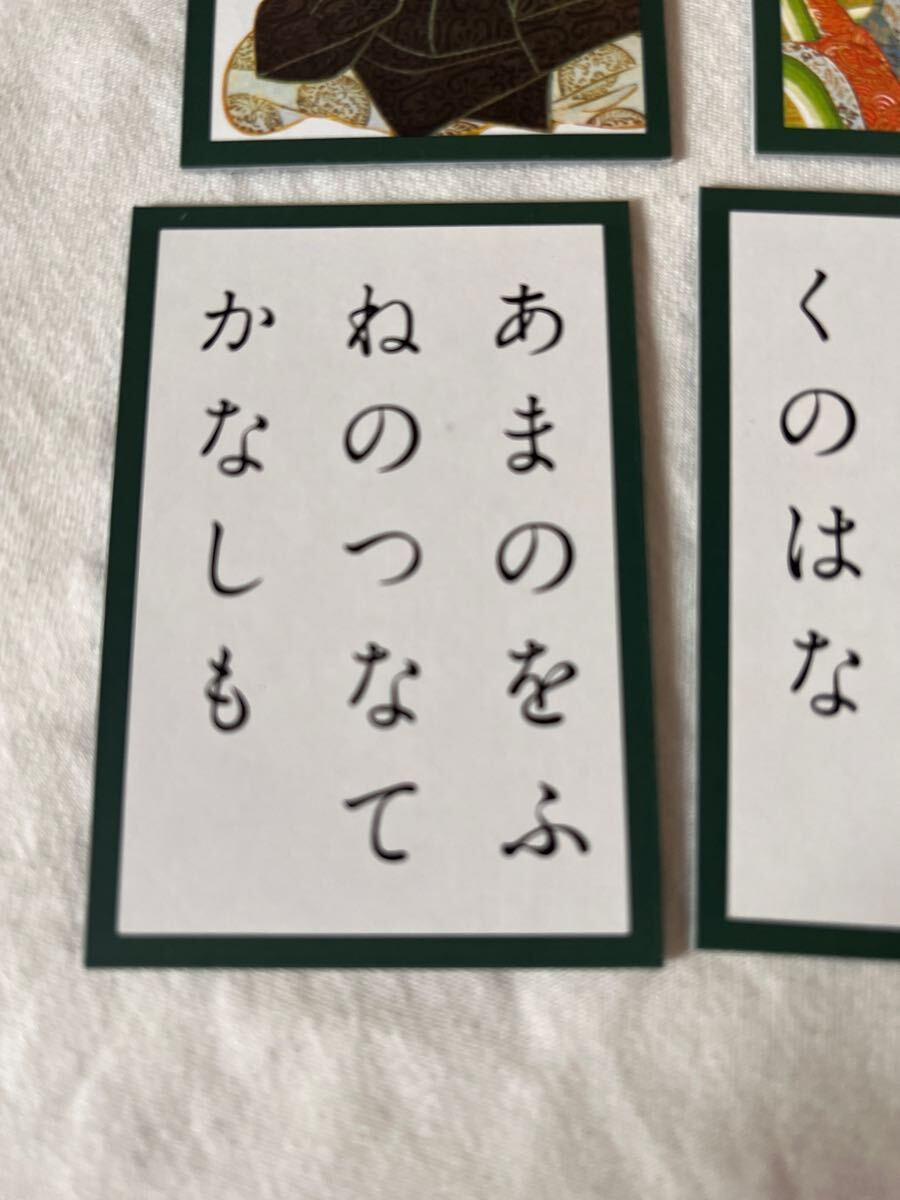 あまのをふ
ねのつなて
かなしも
くのはな